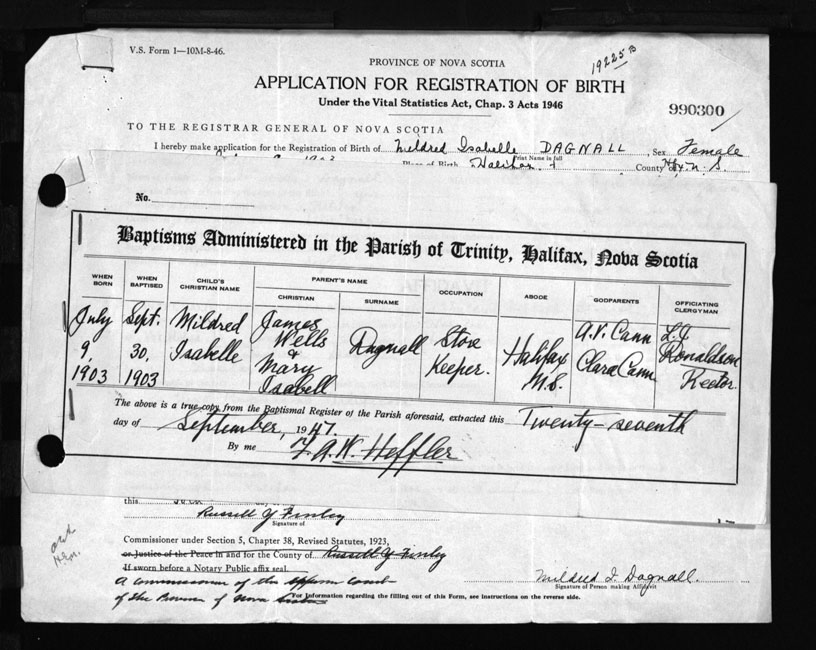 V.S. Form 1—10M-8-46.
19225 B
PROVINCE OF NOVA SCOTIA
APPLICATION FOR REGISTRATION OF BIRTH
Under the Vital Statistics Act, Chap. 3 Acts 1946
990300
TO THE REGISTRAR GENERAL OF NOVA SCOTIA
I hereby make application for the Registration of Birth of Mildred Isabelle DAGNALL, Sex Female
Print Name in full
Place of Birth Halifax County of Hfx. N. S.
No.
Baptisms Administered in the Parish of Trinity, Halifax, Nova Scotia
WHEN BORN WHEN BAPTISED CHILD'S CHRISTIAN NAME PARENT'S NAME CHRISTIAN SURNAME OCCUPATION ABODE GODPARENTS OFFICIATING CLERGYMAN
July Sept. Mildred James Dagnall Store Halifax A.V. Cann L.J.
9, 30, Isabelle Wells & Keeper. N.S. Clara Cann Ronaldson
1903 1903 Mary Isabell Rector
The above is a true copy from the Baptismal Register of the Parish aforesaid, extracted this Twenty-seventh
day of September, 1947.
By me F. A. W. Heffler
this day
Russell Y Finley
Signature of
Commissioner under Section 5, Chapter 38, Revised Statutes, 1923,
or Justice of the Peace in and for the County of Russell Y Finley
If sworn before a Notary Public affix seal.
Mildred I. Dagnall.
Signature of Person making Affidavit
A Commissioner of the Supreme Court
of the Province of Nova Scotia
For Information regarding the filling out of this Form, see instructions on the reverse side.